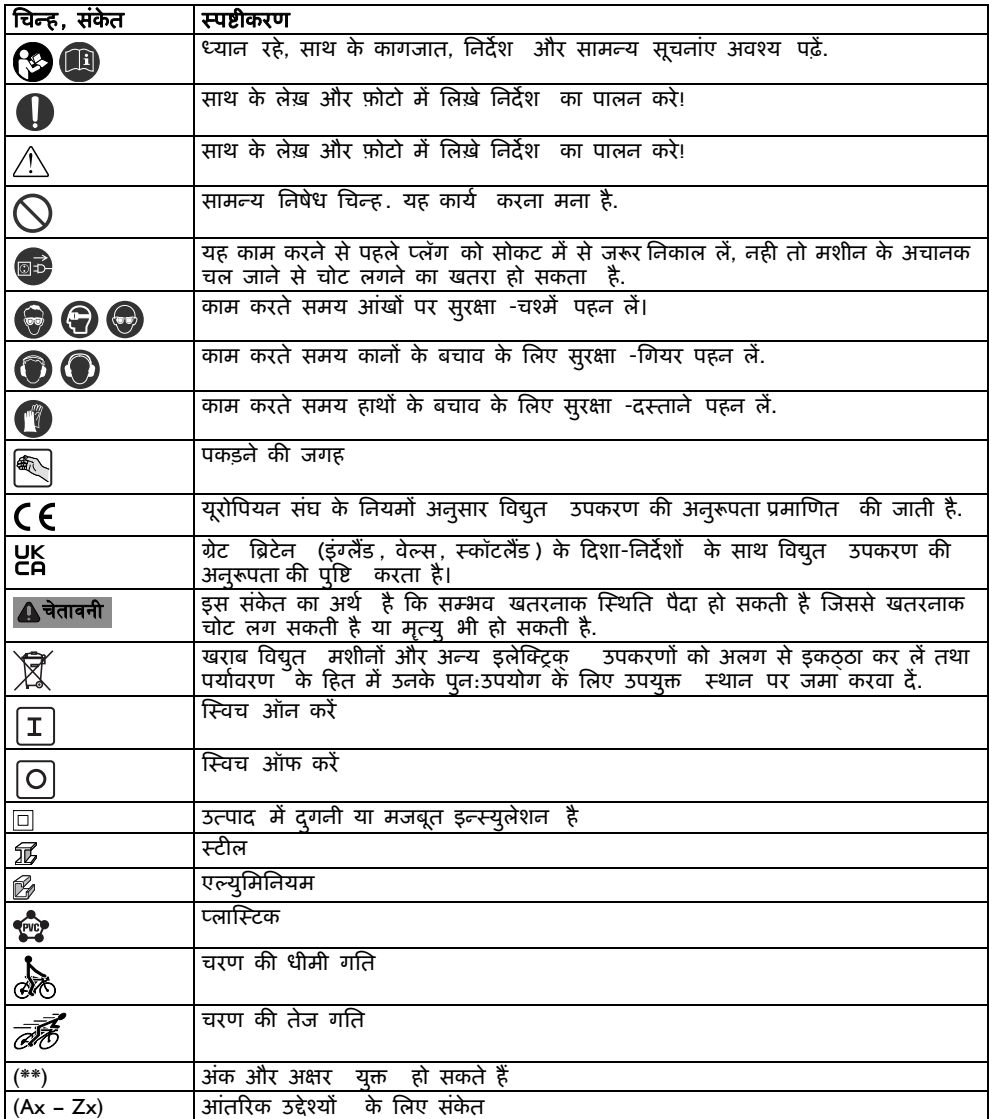 चिन्ह, संकेत स्पष्टीकरण
ध्यान रहे, साथ के कागजात, निर्देश और सामन्य सूचनांए अवश्य पढ़ें.
साथ के लेख़ और फ़ोटो में लिख़े निर्देश का पालन करे!
साथ के लेख़ और फ़ोटो में लिख़े निर्देश का पालन करे!
सामन्य निषेध चिन्ह. यह कार्य करना मना है.
यह काम करने से पहले प्लॅग को सोकट में से जरूर निकाल लें, नही तो मशीन के अचानक
चल जाने से चोट लगने का खतरा हो सकता है.
काम करते समय आंखों पर सुरक्षा -चश्में पहन लें।
काम करते समय कानों के बचाव के लिए सुरक्षा -गियर पहन लें.
काम करते समय हाथों के बचाव के लिए सुरक्षा -दस्ताने पहन लें.
पकड़ने की जगह
CE यूरोपियन संघ के नियमों अनुसार विद्युत उपकरण की अनुरूपता प्रमाणित की जाती है.
UK
CA
ग्रेट ब्रिटेन (इंग्लैंड, वेल्स, स्कॉटलैंड) के दिशा-निर्देशों के साथ विद्युत उपकरण की
अनुरूपता की पुष्टि करता है।
चेतावनी
इस संकेत का अर्थ है कि सम्भव खतरनाक स्थिति पैदा हो सकती है जिससे खतरनाक
चोट लग सकती है या मृत्यु भी हो सकती है.
खराब विद्युत मशीनों और अन्य इलेक्ट्रिक् उपकरणों को अलग से इकठ्ठा कर लें तथा
पर्यावरण के हित में उनके पुन:उपयोग के लिए उपयुक्त स्थान पर जमा करवा दें.
I स्विच ऑन करें
O स्विच ऑफ करें
उत्पाद में दुगनी या मजबूत इन्स्युलेशन है
स्टील
एल्युमिनियम
PVC प्लास्टिक
चरण की धीमी गति
चरण की तेज गति
(**) अंक और अक्षर युक्त हो सकते हैं
(Ax – Zx) आंतरिक उद्देश्यों के लिए संकेत